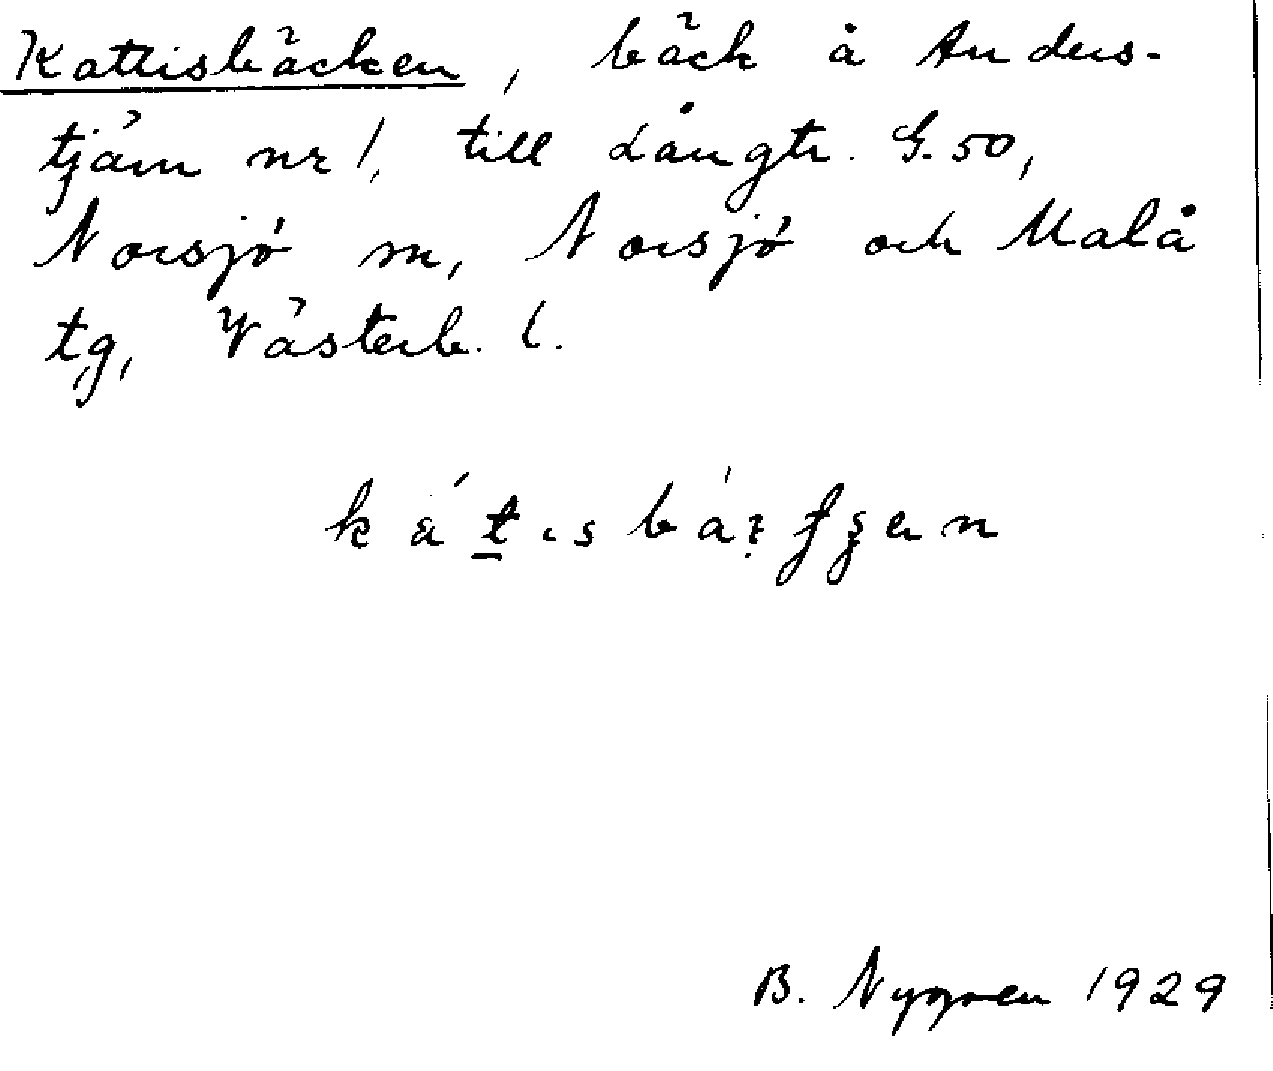 Kattisbäcken, bäck å Anders-
tjärn nr 1, till Långtr. G. 50,
Norsjö sn, Norsjö och Malå
tg, Västerb. l.
B. Nygren 1929